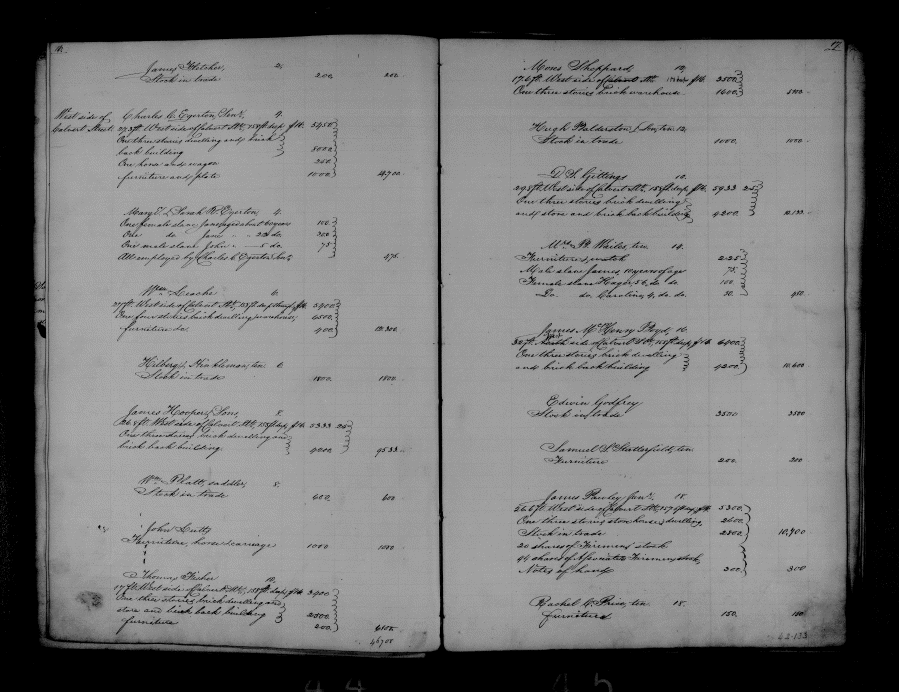 James Fletcher, 2,
Stock in trade 200 200
West side of Calvert Street.
Charles C. Egerton, Senr. 4.
27.3ft. West side of Calvert St., 158ft. deep, f 16. 5450
One three stories dwelling and brick
back building 8000
One horse and wagon 250
furniture and plate 1000 14,700
Mary T. & Sarah R. Egerton, 4.
One female slave Jane, aged about 60 years 100
One do. Jane " " 22 do. 300
One male slave John " — 5 do. 75
All employed by Charles C. Egerton, Senr. 475.
Wm. Leache 6.
27ft. West side of Calvert St., 158ft. deep, f 16. 5400
One four stories brick dwelling warehouse, 6500
furniture &c 400 12.300
Hilberg & Hinkleman, ten 6
Stock in trade 1800 1800
James Hooper, Sons 8.
26.8ft. West side of Calvert St., 158ft deep, f 16. 5333 25
One three stories brick dwelling and
brick back building 4000 9533
Wm. Platt, saddler, 8.
Stock in trade 600 600
John Cutts
Furniture, horse & carriage 1000 1000
Thomas Fisher 10.
17ft. West side of Calvert St., 158ft. deep, f 16. 3400
One three stories brick dwelling and
store and brick back building 2500
furniture 200 6100
46708
Moses Sheppard 12,
17.6ft. West side of Calvert St. f 16. 3500
One three stories brick warehouse 1600 5100
Hugh Balderston & Son, ten 12,
Stock in trade 1000 1000
D. S. Gittings 10.
29.8ft. West side of Calvert St., 158ft. deep, f 16. 5933 25
One three stories brick dwelling
and store and brick back building 4200 10.133
Furniture, watch 225
Male slave James 10 years of age 75
Female slave Hagar, 54, do. do. 100
Do. do. Caroline, 4, do. do. 50 450
James McHenry Boyd, 16
32ft. side of Calvert St., 158ft. deep, f 16. 6400
One three stories brick dwelling
and brick back building 4200 10,600
Edwin Godfrey
Stock in trade 3500 3500
Samuel S. ten
Furniture 200 200
James Pawley Junr. 18.
26.6ft. West side of Calvert St., 157.6ft. deep, f 16. 5300
One three stories store house & dwelling 2600
Stock in trade 2500 10,400
20 shares of Firemens stock
94 shares of Associated Firemens stock
Notes of hand 300 300
Rachel W. Price, ten 18.
furniture 150 150
62.133